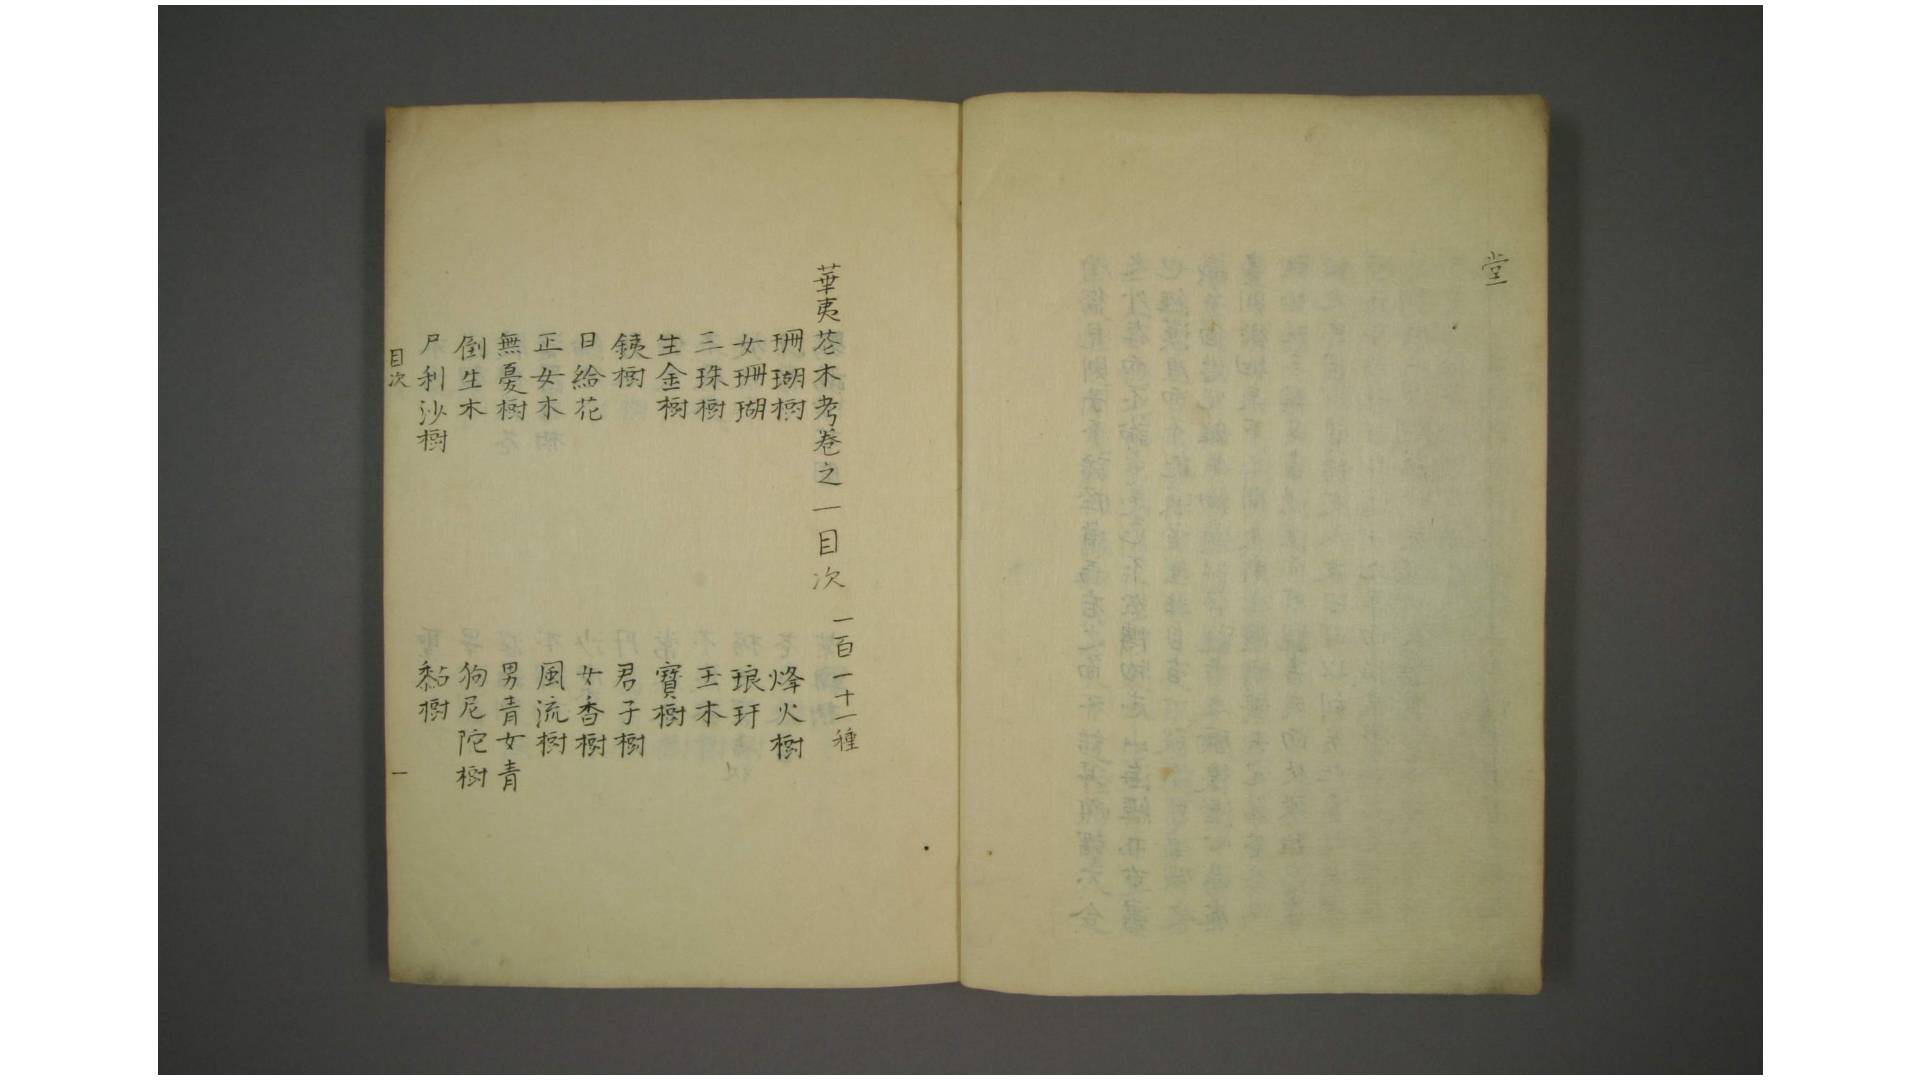 堂
華夷苍木考卷之一目次 一百一十一種
珊瑚樹 烽火樹
女珊瑚 琅玕
三珠樹 玉木
生金樹 寶樹
銕樹 君子樹
日給花 女香樹
正女木 風流樹
無憂樹 男青女青
倒生木 狗尼陀樹
尸利沙樹 黏樹
目次 一